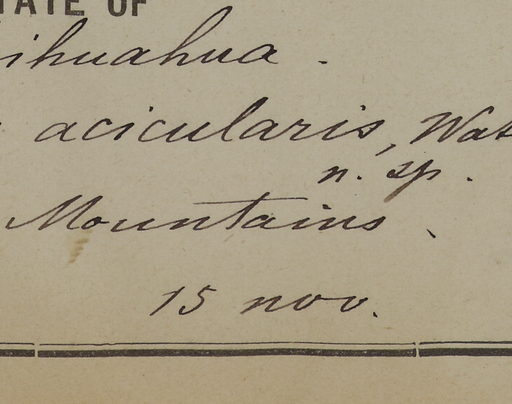 TATE OF
ihuahua.
acicularis, Wats
n. sp.
Mountains.
15 nov.